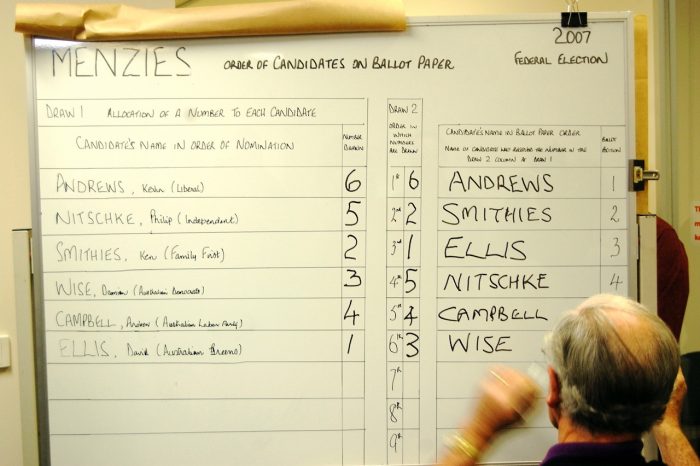 2007
MENZIES ORDER OF CANDIDATES ON BALLOT PAPER FEDERAL ELECTION
DRAW 1 ALLOCATION OF A NUMBER TO EACH CANDIDATE
CANDIDATE'S NAME IN ORDER OF NOMINATION
NUMBER DRAWN
DRAW 2
ORDER IN
WHICH
NUMBERS
ARE DRAWN
CANDIDATE'S NAME IN BALLOT PAPER ORDER
NAME OF CANDIDATE WHO RECEIVED THE NUMBER IN THE
DRAW 2 COLUMN AT DRAW 1
BALLOT POSITION
ANDREWS, Kevin (Liberal) 6 1st 6 ANDREWS 1
NITSCHKE, Philip (Independent) 5 2nd 2 SMITHIES 2
SMITHIES, Ken (Family First) 2 3rd 1 ELLIS 3
WISE, Damien (Australian Democrats) 3 4th 5 NITSCHKE 4
CAMPBELL, Andrew (Australian Labor Party) 4 5th 4 CAMPBELL
ELLIS, David (Australian Greens) 1 6th 3 WISE
7th
8th
9th